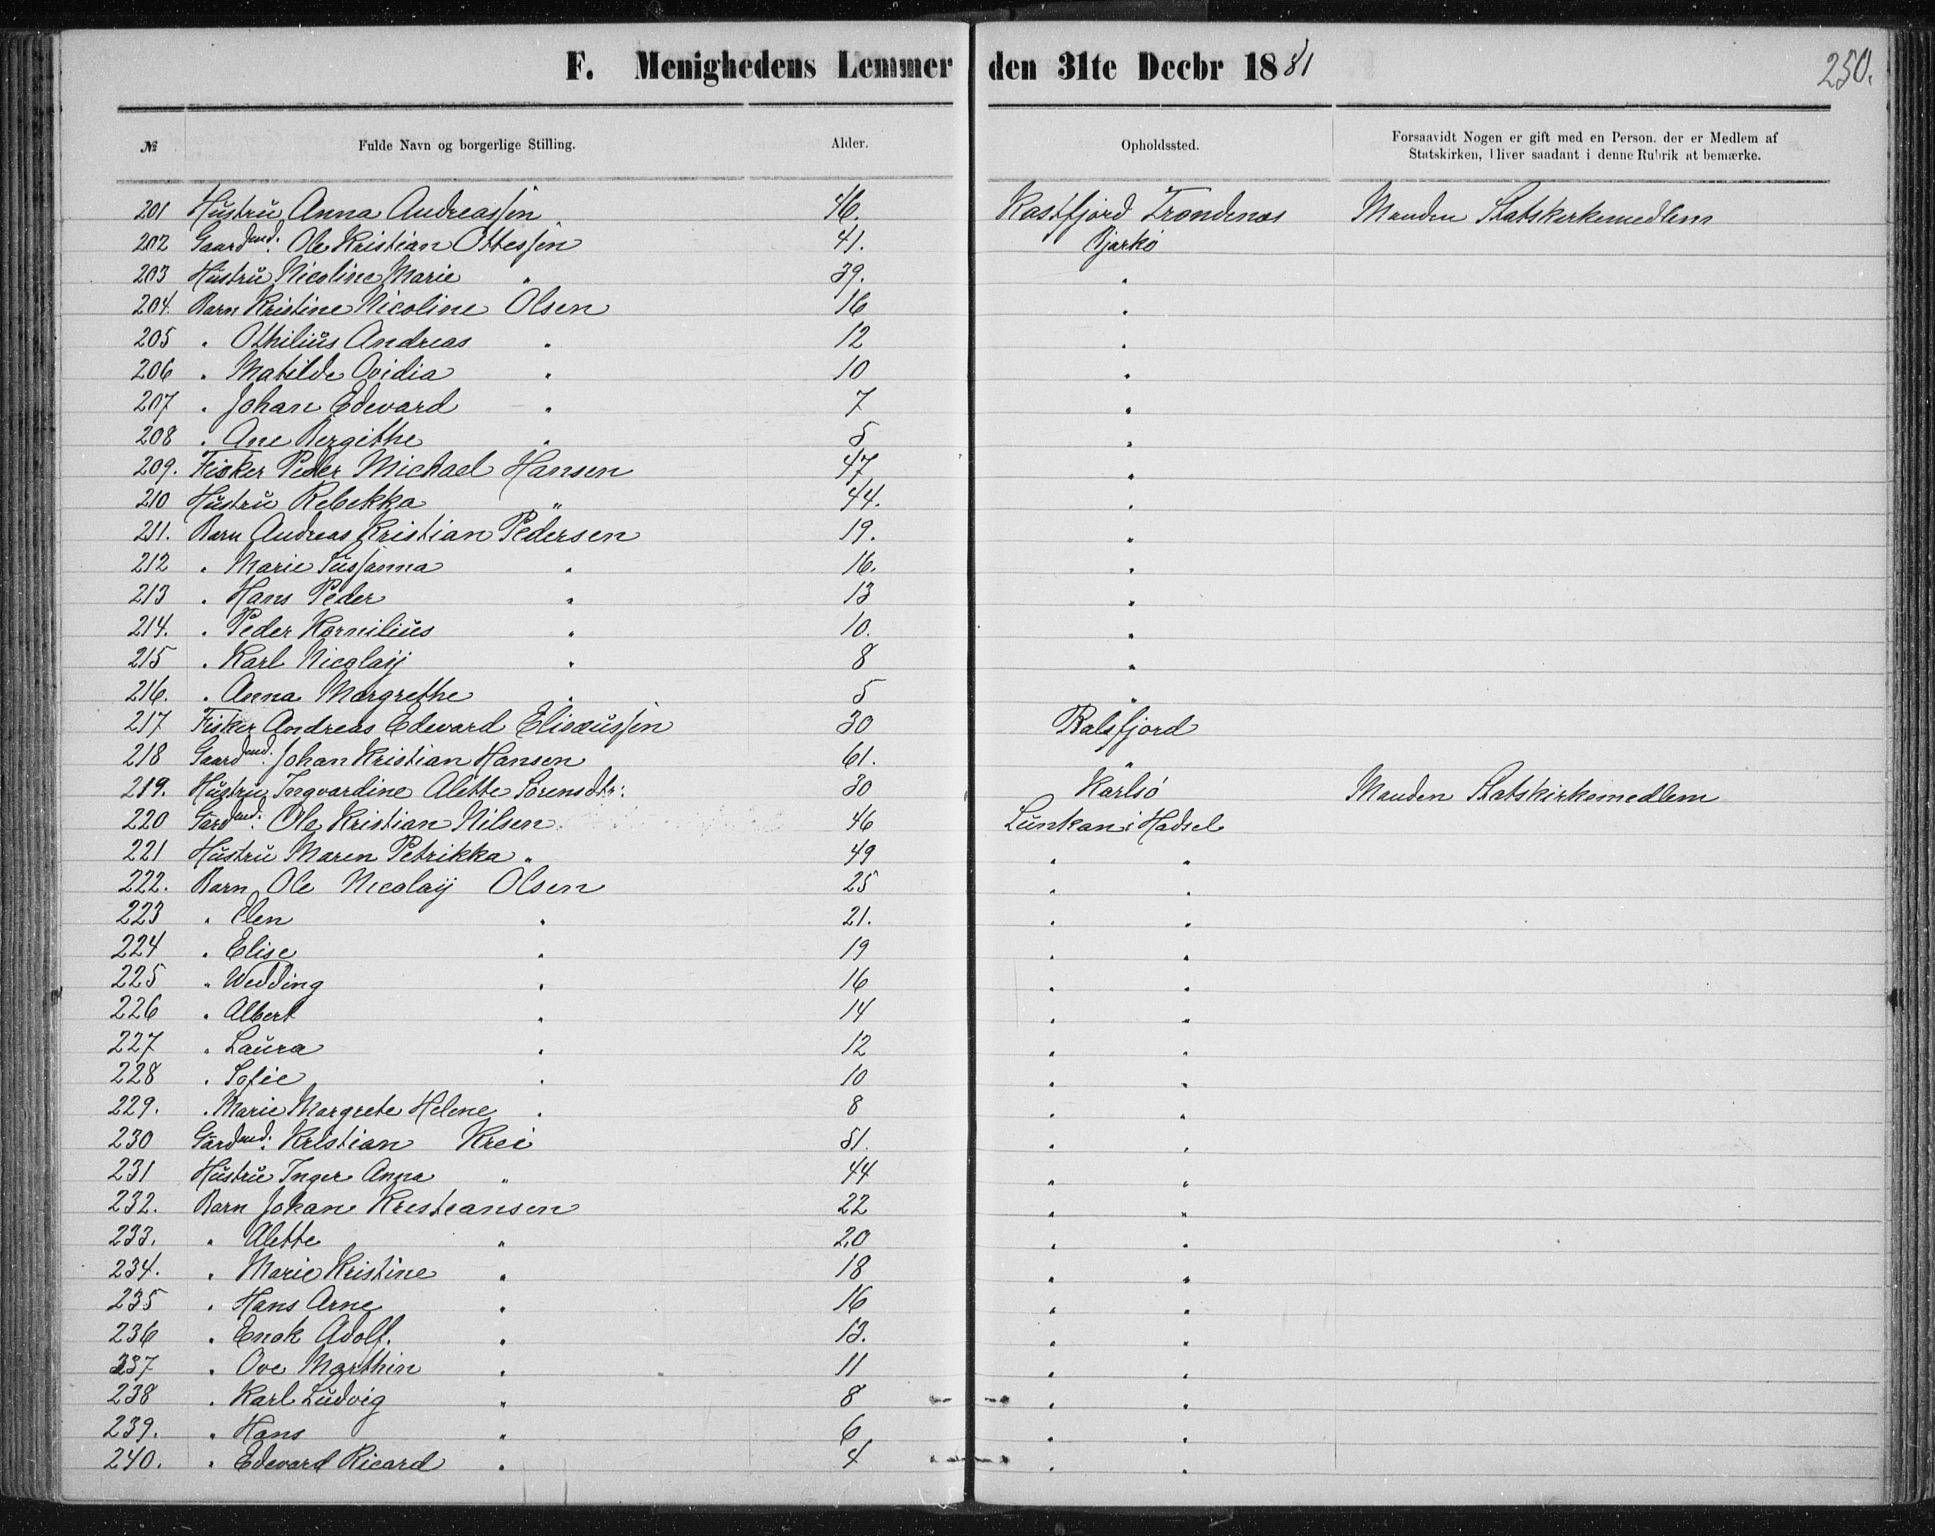 F. Menighedens Lemmer den 31te Decbr 1881
250.
№ Fulde Navn og borgerlige Stilling. Alder. Opholdssted. Forsaavidt Nogen er gift med en Person, der er Medlem af
Statskirken, bliver saadant i denne Rubrik at bemærke.
201 Hustru Anna Andreassen 46. Kastfjord Trondenæs Manden Statskirkemedlem
202 Gaardmd: Ole Kristian Ottessen 41. Bjarkö
203 Hustru Nicoline Marie " 39. "
204. Barn Kristine Nicoline Olsen 16 "
205 " Othilius Andreas " 12 "
206 " Matilde Ovidia " 10 "
207 " Johan Edevard " 7 "
208 " Ane Bergithe " 5 "
209. Fisker Peder Michael Hansen 47 "
210 Hustru Rebekka " 44. "
211. Barn Andreas Kristian Pedersen 19. "
212 " Marie Sussanna " 16. "
213 " Hans Peder " 13 "
214. " Peder Kornilius " 10. "
215 " Karl Nicolaij " 8 "
216. " Anna Margrethe " 5 "
217 Fisker Andreas Edevard Eliseussen 30 Balsfjord
218 Gaardmd: Johan Kristian Hansen 61. "
219. Hustru Ingvardine Alette Sörensdtr: 30 Karlsö Manden Statskirkemedlem
220 Gardmd: Ole Kristian Nilsen 46 Lunkan i Hadsel
221 Hustru Maren Petrikka " 49 " "
222. Barn Ole Nicolaij Olsen 25 " "
223 " Elen " 21. " "
224 " Elise " 19 " "
225 " Wedding " 16 " "
226 " Albert " 14 " "
227 " Laura " 12 " "
228 " Sofie " 10 " "
229. " Marie Margrete Helene " 8 " "
230 Gårdmd: Kristian Krei 51. " "
231 Hustru Inger Anna " 44 " "
232. Barn Johan Kristiansen 22 " "
233. " Alette " 20 " "
234. " Marie Kristine " 18 " "
235 " Hans Arne " 16 " "
236 " Enok Adolf. " 13. " "
237 " Ove Marthin " 11 " "
238 " Karl Ludvig " 8 " "
239. " Hans " 6 " "
240. " Edevard Ricard " 4 " "